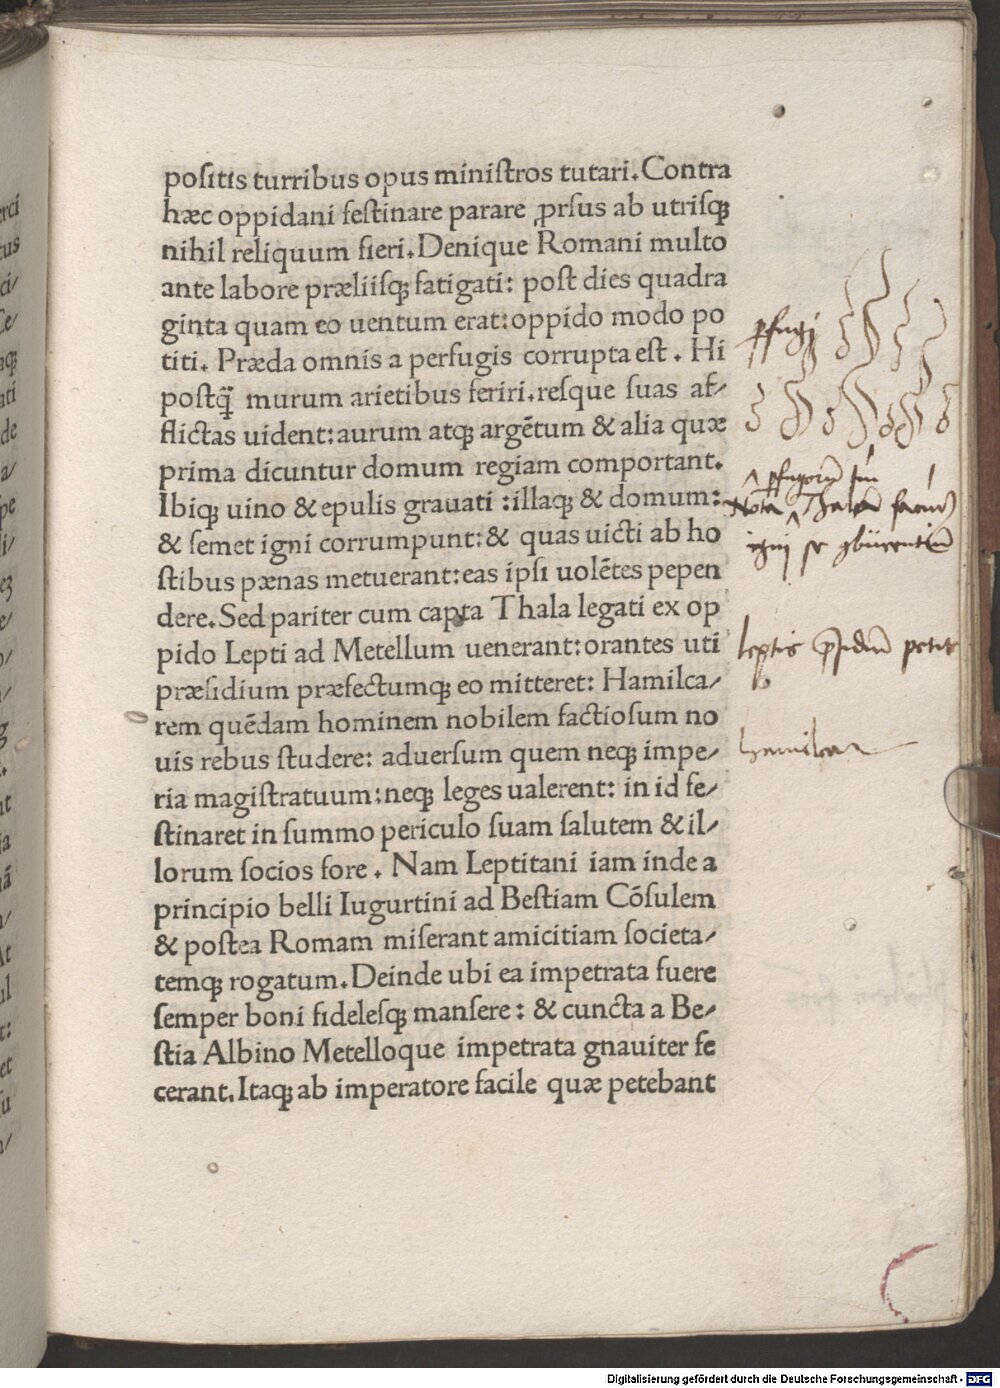 poſitis turribus opus miniſtros tutari. Contra
hæc oppidani feſtinare parare ꝓrſus ab utriſqꝫ
nihil reliquum fieri. Denique Romani multo
ante labore præliiſqꝫ fatigati: poſt dies quadra
ginta quam eo uentum erat: oppido modo po
titi. Præda omnis a perfugis corrupta eſt. Hi
poſtq̃ murum arietibus feriri. reſque ſuas af⸗
flictas uident: aurum atqꝫ argẽtum & alia quæ
prima dicuntur domum regiam comportant.
Ibiqꝫ uino & epulis grauati: illaqꝫ & domum:
& ſemet igni corrumpunt: & quas uicti ab ho
ſtibus pænas metuerant: eas ipſi uolẽtes pepen
dere. Sed pariter cum capta Thala legati ex op
pido Lepti ad Metellum uenerant: orantes uti
præſidium præfectumqꝫ eo mitteret: Hamilca⸗
rem quẽdam hominem nobilem factioſum no
uis rebus ſtudere: aduerſum quem neqꝫ impe⸗
ria magiſtratuum: neqꝫ leges ualerent: in id fe⸗
ſtinaret in ſummo periculo ſuam ſalutem & il⸗
lorum ſocios fore. Nam Leptitani iam inde a
principio belli Iugurtini ad Beſtiam Cõſulem
& poſtea Romam miſerant amicitiam ſocieta⸗
temqꝫ rogatum. Deinde ubi ea impetrata fuere
ſemper boni fideleſqꝫ manſere: & cuncta a Be⸗
ſtia Albino Metelloque impetrata gnauiter fe
cerant. Itaqꝫ ab imperatore facile quæ petebant
ꝑfugj
Nota
ignj se
leptis p̄sidiũ petit
hamilcar
Digitalisierung gefördert durch die Deutsche Forschungsgemeinschaft - DFG